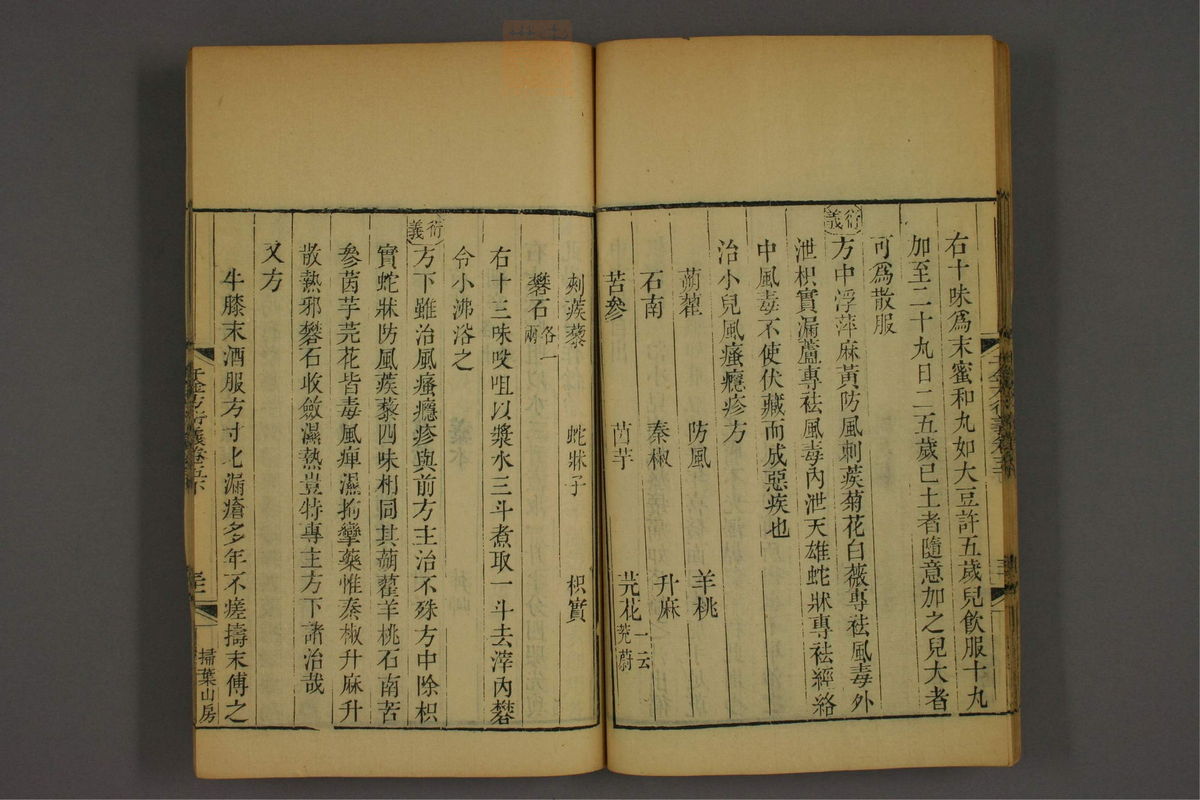 右十味爲末蜜和丸如大豆許五歲兒飲服十九
加至二十九日二五歲已上者隨意加之兒大者
可爲散服
衍義
方中浮萍麻黃防風刺蒺菊花白薇專祛風毒外
泄枳實漏蘆專祛風毒內泄天雄蛇牀專祛經絡
中風毒不使伏藏而成惡疾也
治小兒風瘙癮疹方
蒴藋 防風 羊桃
石南 秦椒 升麻
苦參 茵芋 芫花一云芫蔚
刺蒺藜 蛇牀子 枳實
礬石各一兩
右十三味㕮咀以漿水三斗煮取一斗去滓內礬
令小沸浴之
衍義
方下雖治風瘙癮疹與前方主治不殊方中除枳
實蛇牀防風蒺藜四味相同其蒴藋羊桃石南苦
參茵芋芫花皆毒風痺濕拘攣藥惟秦椒升麻升
散熱邪礬石收斂濕熱豈特專主方下諸治哉
又方
牛膝末酒服方寸匕漏瘡多年不瘥擣末傅之
千金方衍義卷五下
掃葉山房